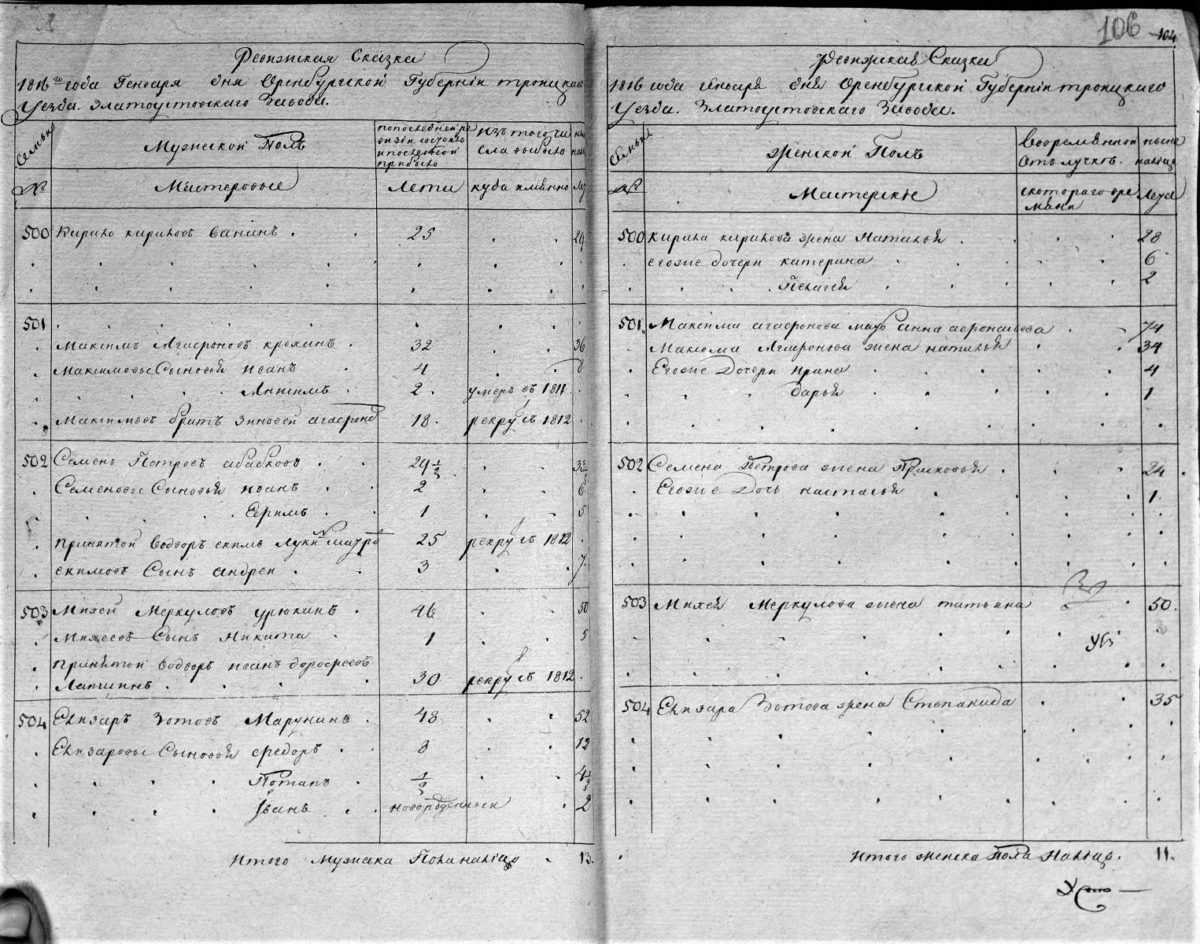 Ревизская Сказка
1816го года Генваря дня Оренбургской Губернїи троицкаго
Уезда. Златоустовскаго Завода.
Семьи
Мужеской Полъ
по последней ре
визїи состояло
и после оной
прибыло
изъ того чи
сла выбыло
№
Мастеровые
Лета
куда имянно
500 Кирило кириловъ ванинъ 25 29
501
Максимъ Агафоновъ крохинъ 32 36
Максимовы Сыновья иванъ 4 8
Якимъ 2 умеръ въ 1811
Максимовъ братъ Зиновей агафоновъ 18 рекру въ 1812
502 Семенъ Петровъ абабковъ
Семеновы Сыновья иванъ 2 6
Ефимъ 1 5
принятой водворъ екимъ 25 рекру въ 1812
екимовъ Сынъ андреи 3 7
503 Михей Меркуловъ урюкинъ 46 50
Михеевъ Сынъ Никита 1 5
принятой водворъ иванъ дорофеевъ
Лапшинъ 30 рекру въ 1812
504 Елизаръ Зотовъ Марунинъ 48 52
Елизаровы Сыновья федоръ 8 12
Потапъ ½ 4½
Iванъ новорожденъ 2
Итого Мужска Пола налицо 13.
106
104
Ревизская Сказка
1816 года генваря дня Оренбургской Губернїи троицкаго
Уезда. Златоустовскаго Завода.
Семьи
Женской Полъ
вовременной
отлучке
ныне
налицо
№
Мастерскїе
скотораго вре
мени
Лета
500 кирила кирилова жена Наталья 28
егоже дочери катерина 6
Пелагея 2
501 Максима агафонова мать анна афонасьева 74
Максима Агафонова жена наталья 34
Егоже Дочери ирина 4
дарья 1
502 Семена Петрова жена Прасковья 24
Егоже Дочь настасья 1
503 Михея Меркулова жена татьяна 50
504 Елизара Зотова жена Степанида 35
Итого женска Пола Налицо. 11.